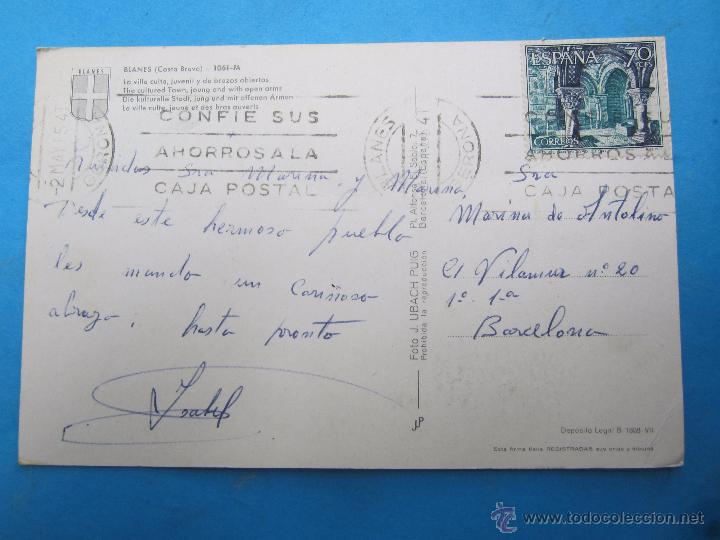 BLANES (Costa Brava) - 1061-JA
La villa culta, juvenil y de brazos abiertos
The cultured Town, joung and with open arms
Die kulturelle Stadt, jung und mit offenen Armen
La ville culte, jeune et des bras ouverts
BLANES
CONFIE SUS
AHORROS A LA
CAJA POSTAL
2 MAY
GERONA
BLANES
GERONA
CONFIE SUS
AHORROS A LA
CAJA POSTAL
ESPAÑA
70
CTS
CORREOS
Queridas Sra Marina y Marina,
Desde este hermoso pueblo
les mando un cariñoso
abrazo, hasta pronto
Isabel
Foto J. UBACH PUIG
Prohibida la reproducción
Pl. Alfonso X el Sabio, 7
Barcelona (España)
Sra
Marina de Antolino
C/ Vilamur nº 20
1º 1ª
Barcelona
Depósito Legal B. 1808-VII
Esta firma tiene REGISTRADAS sus
© todocoleccion
www.todocoleccion.net